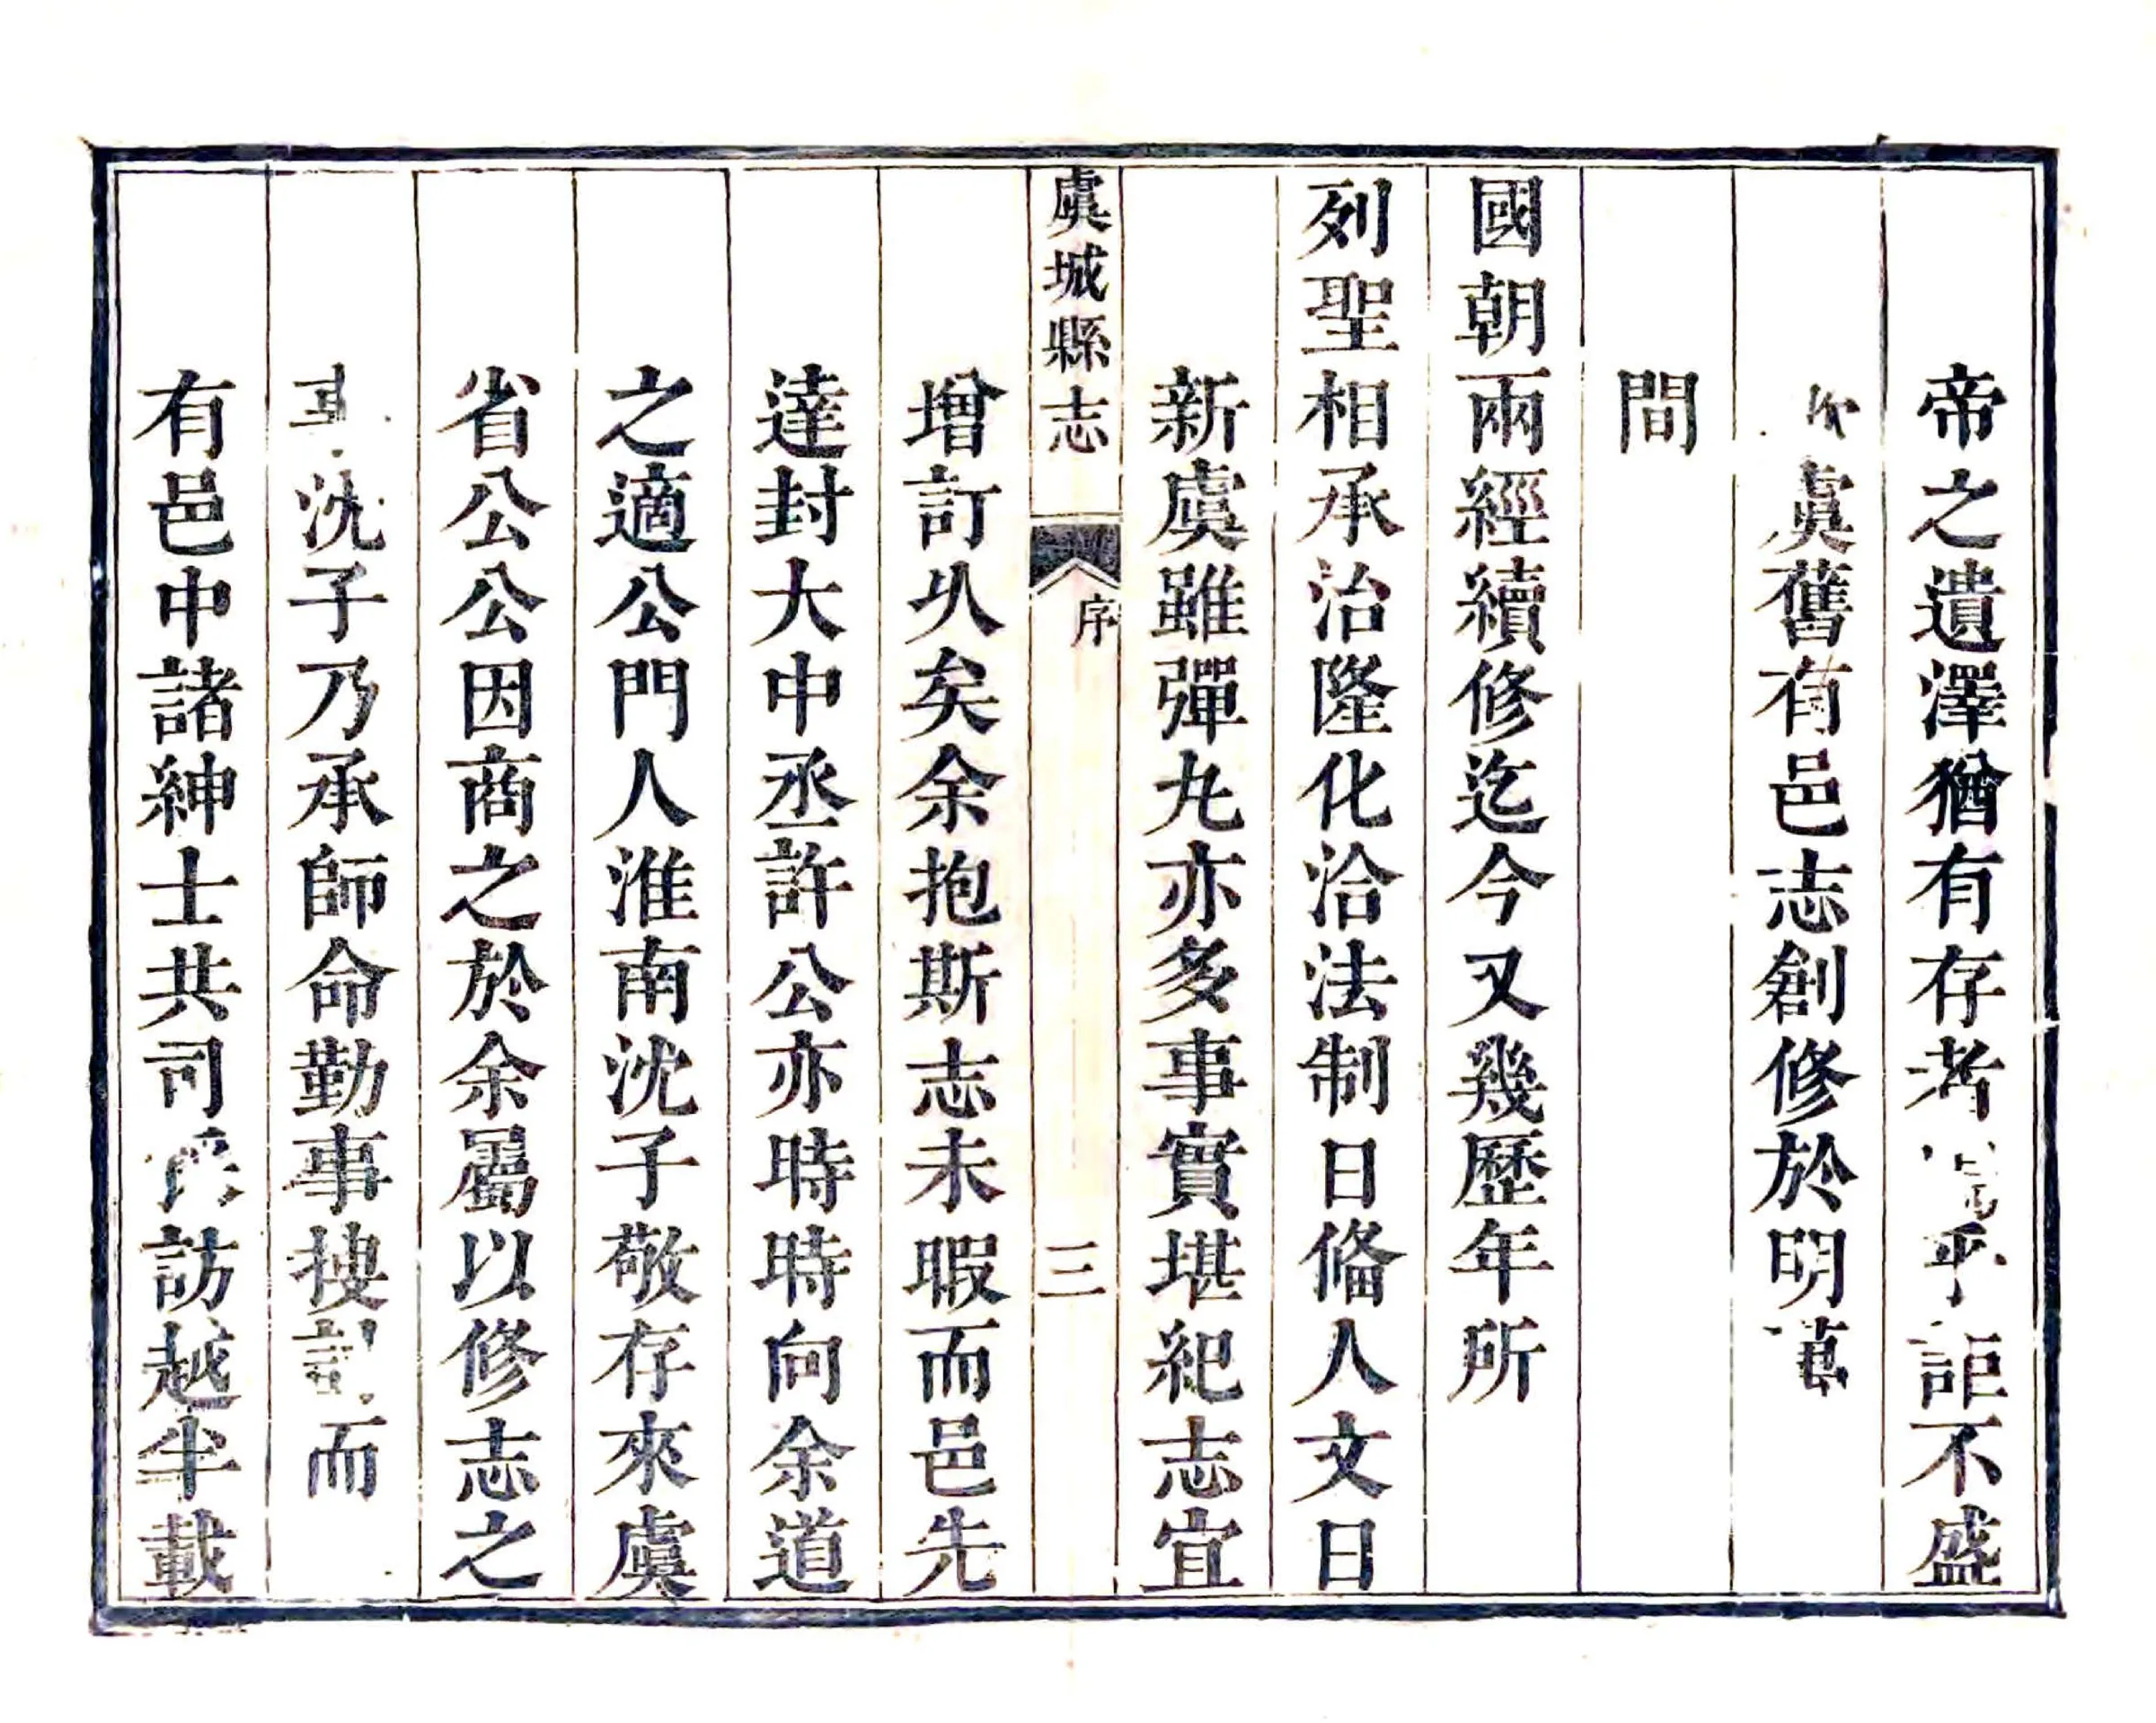 帝之遺澤猶有存者乎詎不盛
虞舊有邑志創修於明萬
間
國朝兩經續修迄今又幾歷年所
列聖相承治隆化洽法制日備人文日
新虞雖彈丸亦多事實堪紀志宜
虞城縣志 序 三
增訂乆矣余抱斯志未暇而邑先
達封大中丞許公亦時時向余道
之適公門人淮南沈子敬存來虞
省公公因商之於余屬以修志之
事沈子乃承師命勤事搜討而
有邑中諸紳士共司訪越半載